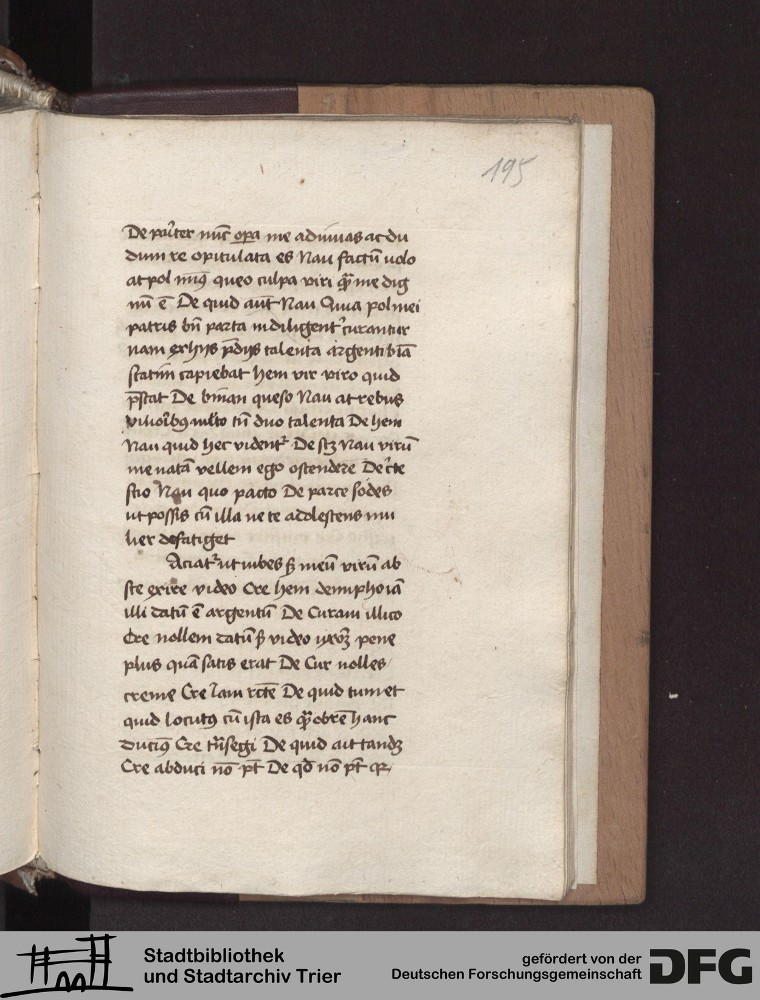 195
De parit̃ter nũc opa me adiuuas ac du
dum re opitulata es Nau factũ uolo
at pol miꝰ queo culpa viri q̃ me dig
nũ ē De quid aũt Nau Quia pol mei
patris bñ parta indiligentʳ curantur
nam ex hijs p̃dijs talenta argenti bīa
statim capiebat hem vir viro quid
p̃stat De binan queso Nau at rebus
vilioribꝫ mlto tñ duo talenta De hem
Nau quid hec videntʳ De scꝫ Nau virũ
me natā vellem ego ostendere De c̃te
scio Nau quo pacto De parce sodes
ut possis cũ illa ne te adolestens mu
lier defatiget
Aciatʳ ut iubes sꝫ meũ virũ ab
ste exire video Cre hem demiphoiā
illi datũ ē argentũ De Curaui illico
Cre nollem datũ sꝫ video uxorꝫ pene
plus quā satis erat De Cur nolles
creme Cre Iam rc̃te De quid tu m et
quid locutꝰ cũ ista es q̃ obrē hanc
duciꝰ Cre t̃nsegi De quid ait tandꝫ
Cre abduci nō pt̃ De qd̃ nō pt̃ qꝛ
Stadtbibliothek
und Stadtarchiv Trier
gefördert von der
Deutschen Forschungsgemeinschaft
DFG